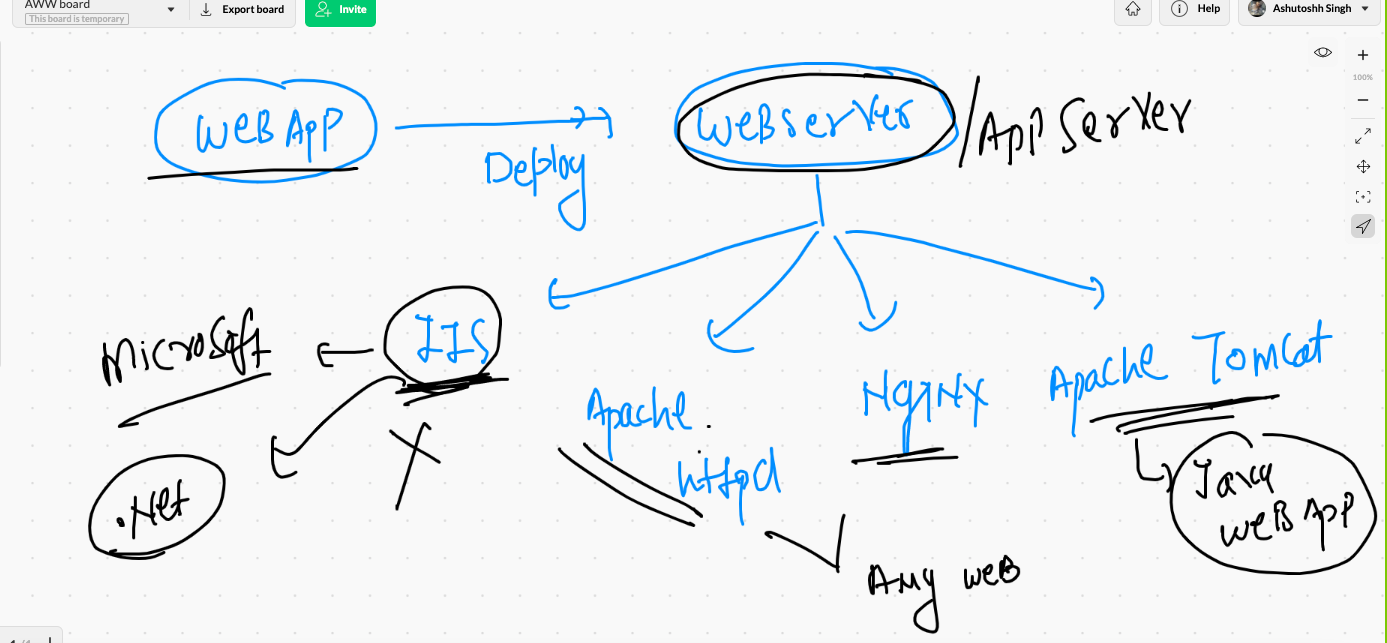 AWW board
This board is temporary
Export board
Invite
Help
Ashutoshh Singh
100%
WEB App
Deploy
WEBserver
/App Server
Microsoft
IIS
.Net
Apache.
httpd
NgINX
Apache Tomcat
Java
WEB App
Any web